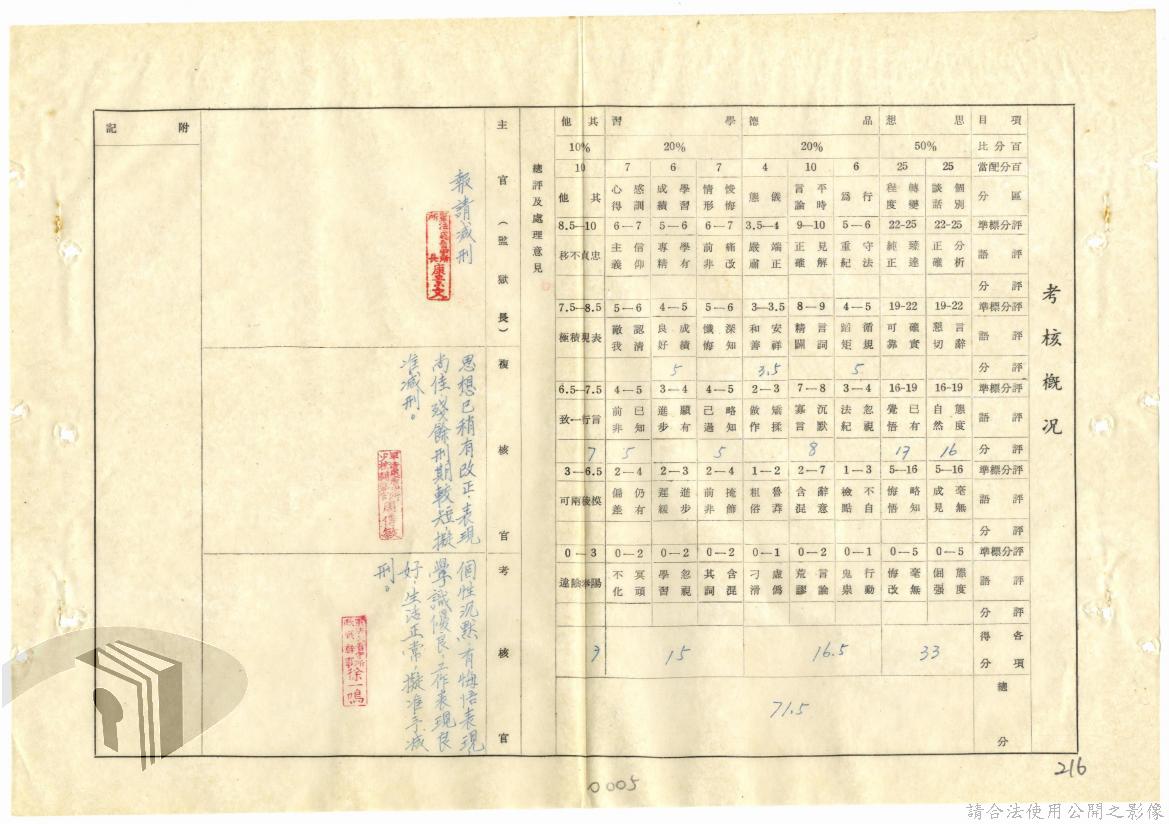 考核概況
項目 思想 品德 學習 其他
百分比 50% 20% 20% 10%
百分配當 25 25 6 10 4 7 6 7 10
區分 個別談話 轉變程度 行為 平時言論 儀態 悛悔情形 學習成績 感訓心得 其他
評分標準 22-25 22-25 5—6 9—10 3.5—4 6—7 5—6 6—7 8.5—10
評語 分析正確 臻達純正 守法重紀 見解正確 端正嚴肅 痛改前非 學有專精 信仰主義 忠貞不移
評分
評分標準 19-22 19-22 4—5 8—9 3—3.5 5—6 4—5 5—6 7.5—8.5
評語 言辭懇切 確實可靠 循規蹈矩 言詞精闢 安祥和善 深知懺悔 成績良好 認清敵我 表現積極
評分 5 3.5 5
評分標準 16-19 16-19 3—4 7—8 2—3 4—5 3—4 4—5 6.5—7.5
評語 態度自然 已有覺悟 忽視法紀 沉默寡言 矯揉做作 略知己過 顯有進步 已知前非 言行一致
評分 16 17 8 5 5 7
評分標準 5—16 5—16 1—3 2—7 1—2 2—4 2—3 2—4 3—6.5
評語 毫無成見 略知悔悟 不自檢點 辭意含混 魯莽粗俗 掩飾前非 進步遲緩 仍有偏差 模稜兩可
評分
評分標準 0—5 0—5 0—1 0—2 0—1 0—2 0—2 0—2 0—3
評語 態度倔强 毫無悔改 行動鬼祟 言論荒謬 虛僞刁滑 含混其詞 忽視學習 冥頑不化 陽奉陰違
評分
各項得分 33 16.5 15 7
總分 71.5
總評及處理意見
主官（監獄長）
報請減刑
複核官
思想已稍有改正，表現
尚佳，殘餘刑期較短，擬
准減刑。
考核官
個性沉默，有悔悟表現
學識優良，工作表現良
好，生活正常，擬准予減
刑。
徐一鳴
附記
216
0005
請合法使用公開之影像